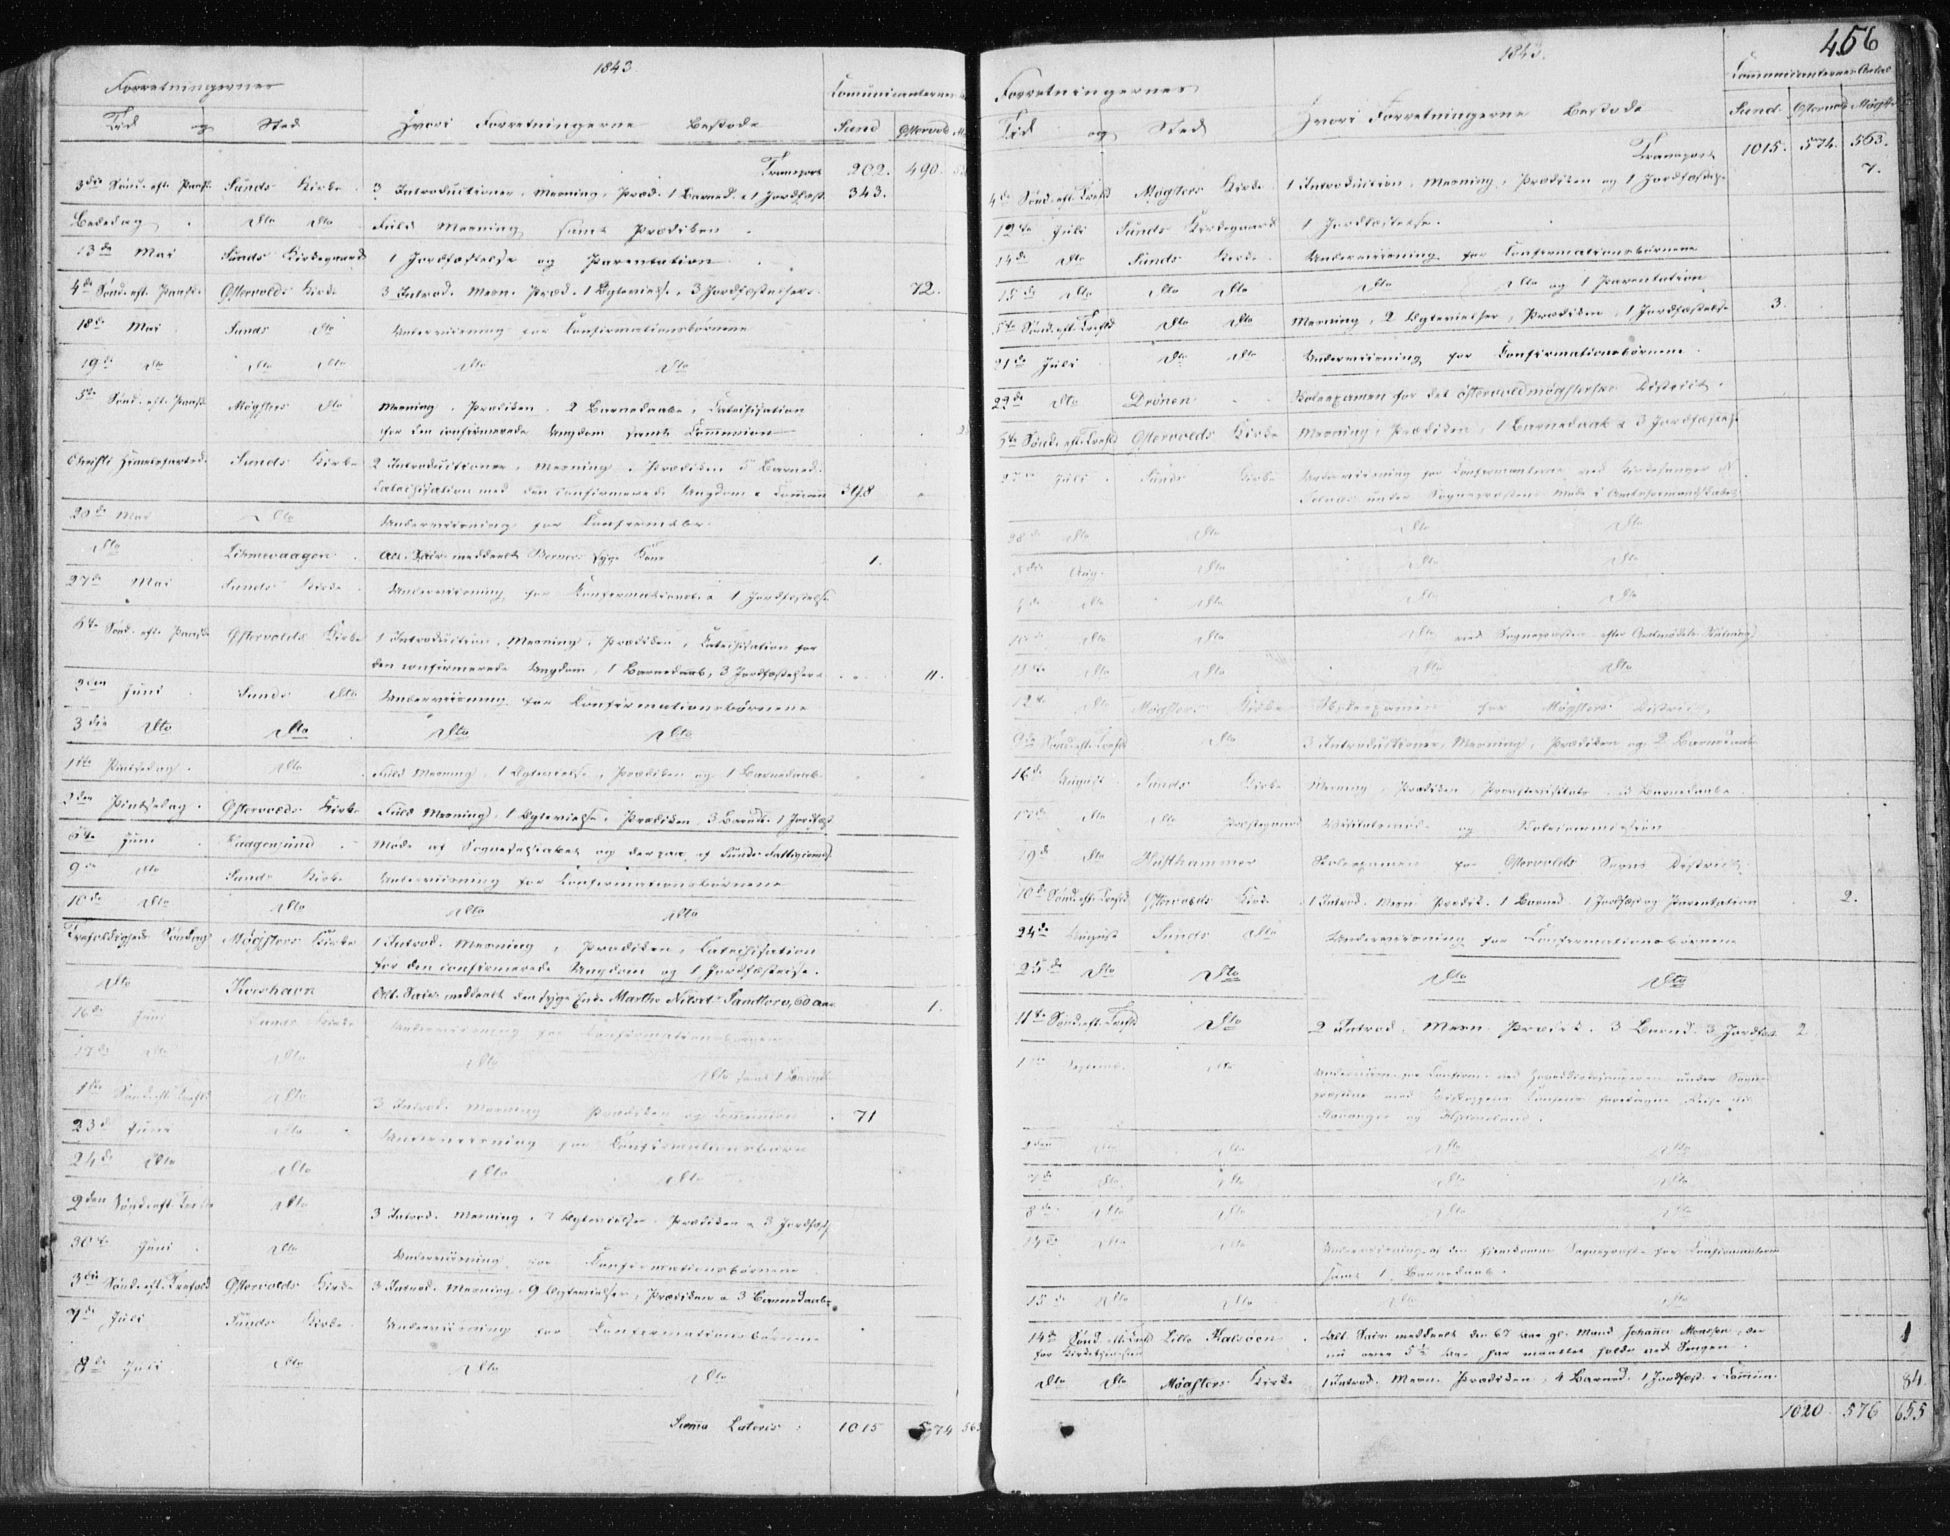 1843
Forretningernes
Communicanternes
Tid og Sted Hvori Forretningerne bestode Sund Østervold
Transport 202. 490.
3die Sönd. eft. Paaske Sunds Kirke 3 Introductioner, Messning, Præd. 1 Barned. & 1 Jordfæst. 343.
Bededag Dto Dto Fuld Messning samt Prædiken
13de Mai Sunds Kirkegaard 1 Jordfæstelse og Parentation
4de Sönd. eft. Paaske Østervolds Kirke 3 Introd. Messn. Præd. 1 Ægtevielse, 3 Jordfæstelser 72.
18de Mai Sunds Dto Underviisning for Confirmationsbörnene
19de Dto Dto Dto Dto Dto
5te Sönd. eft. Paaske Møgsters Dto Messning, Prædiken, 2 Barnedaabe, Catechisation
for den confirmerede Ungdom samt Communion
Christi Himmelfartsd. Sunds Kirke 2 Introductioner, Messning, Prædiken 5 Barned.
Catechisation med den confirmerede Ungdom & Commun 398
20de Mai Dto Underviisning for Confirmator
Dto Alt. Sacr. meddeelt syge Kone 1.
27de Mai Sunds Kirke Underviisning for Confirmationsb. & 1 Jordfæstelse
6te Sönd. efter Paaske Østervolds Kirke 1 Introduction, Messning, Prædiken, Catechisation for
den confirmerede Ungdom, 1 Barnedaab, 3 Jordfæstelser 11.
2den Juni Sunds Dto Underviisning for Confirmationsbörnene
3die Dto Dto Dto Dto
1ste Pintsedag Dto Fuld Messning, 1 Ægtevielse, Prædiken og 1 Barnedaab
2den Pintsedag Østervolds Kirke Fuld Messning, 1 Ægtevielse, Prædiken, 3 Barned. 1 Jordfæst
6te Juni Möde af Sogneselskabet og derpaa af Sunds Fattigcomms.
9de Dto Sunds Kirke Underviisning for Confirmationsbörnene
10de Dto Dto Dto Dto
Trefoldigheds Söndag Møgsters Kirke 1 Introd. Messning, Prædiken, Catechisation
for den confirmerede Ungdom og 1 Jordfæstelse.
Dto Korshavn Alt. Sacr. meddeelt den syge Enke Marthe Nilsdt. 60 Aar 1.
16de Juni Sunds Kirke Underviisning for Confirmationsbörnene
17de Dto Dto Dto Dto samt 1 Barned.
1ste Sönd. eft. Trefold Dto 3 Introd. Messning Prædiken og Communion 71
23de Juni Dto Underviisning for Confirmationsbörn
24de Dto Dto Dto Dto
2den Sönd. eft. Dto 3 Introd. Messning, Ægtevielser Prædiken & 3 Jordfæst
30te Juni Dto Underviisning for Confirmationsbörnene
3die Sönd. eft. Trefold Østervolds Kirke 3 Introd. Messning, 9 Ægtevielser, Prædiken & 3 Barnedaabe
7de Juli Sunds Kirke Underviisning for Confirmationsbörnene
8de Juli Dto Dto Dto
Summa Lateris: 1015 574 563
456
1843.
Forretningernes
Communicanternes Antal
Tid og Sted Hvori Forretningerne bestode Sund Østervold Møgster
Transport 1015. 574. 563.
4de Sönd. eft. Trefold Møgsters Kirke 1 Introduction, Messning, Prædiken og 1 Jordfæstelse 7.
12te Juli Sunds Kirkegaard 1 Jordfæstelse.
14de Dto Sunds Kirke Underviisning for Confirmationsbörnene
15de Dto Dto Dto Dto Dto og 1 Parentation
5te Sönd. eft. Trefold Dto Dto Messning, 2 Ægtevielser, Prædiken, 1 Jordfæstelse 3.
21de Juli Dto Dto Underviisning for Confirmationsbörnene.
22de Dto Drönen Skoleexamen for det östervoldmögsterske District.
6te Sönd. eft. Trefold Østervolds Kirke Messning, Prædiken, 1 Barnedaab & 3 Jordfæstelser
27de Juli Sunds Kirke Underviisning for Confirmanterne ved Kirkesanger
under Sognepræstens Möde i Amtsformandskabet
28de Dto Dto Dto Dto
3die Aug. Dto Dto Dto
4de Dto Dto Dto Dto
Dto Dto Dto ved Sognepræsten efter
11te Dto Dto Dto Dto
12te Dto Møgsters Kirke Skoleexamen for Møgsters District
9de Sönd. eft. Trefold Dto 3 Introductioner, Messning, Prædiken og 2 Barnedaab
16de August Sunds Kirke Messning, Prædiken, Provstevisitats, 3 Barnedaabe
17de Dto Dto Præstegaard Visitatsmöde og Skolecommission
19de Dto Hufthammer Skoleexamen for Østervolds Sogns District
10de Sönd. eft. Trefold Østervolds Kirke 1 Introd. Messn Prædik. 1 Barned. 1 Jordfæst og Parentation 2.
24de August Sunds Dto Underviisning for Confirmationsbörnene
25de Dto Dto Dto Dto
11te Sönd. eft. Trefold Dto 2 Introd. Messn. Prædik. 3 Barned. 3 Jordfæst. 2
1ste Septemb. Dto Underviisn. for Confirm. ved under Sogne-
præstens med foretagne Reise til
Stavanger og
2den Dto Dto Dto Dto
7de Dto Dto Dto Dto
8de Dto Dto Dto Dto
14de Dto Dto Underviisning af den hiemkomne Sognepræst for Confirmanterne
samt 1 Barnedaab.
15de Dto Dto Dto Dto
14de Sönd. eft. Trefold Lille Kalsöen Alt. Sacr. meddeelt den 67 Aar gl. Mand Johannes Monsen, der
for Kirketjenesten nu over 5½ Aar har maattet holde ved Sengen. 1
Dto Dto Møgsters Kirke 1 Introd. Messn. Prædiken, 4 Barned. 1 Jordfæst. & Commun. 84.
1020 576 655